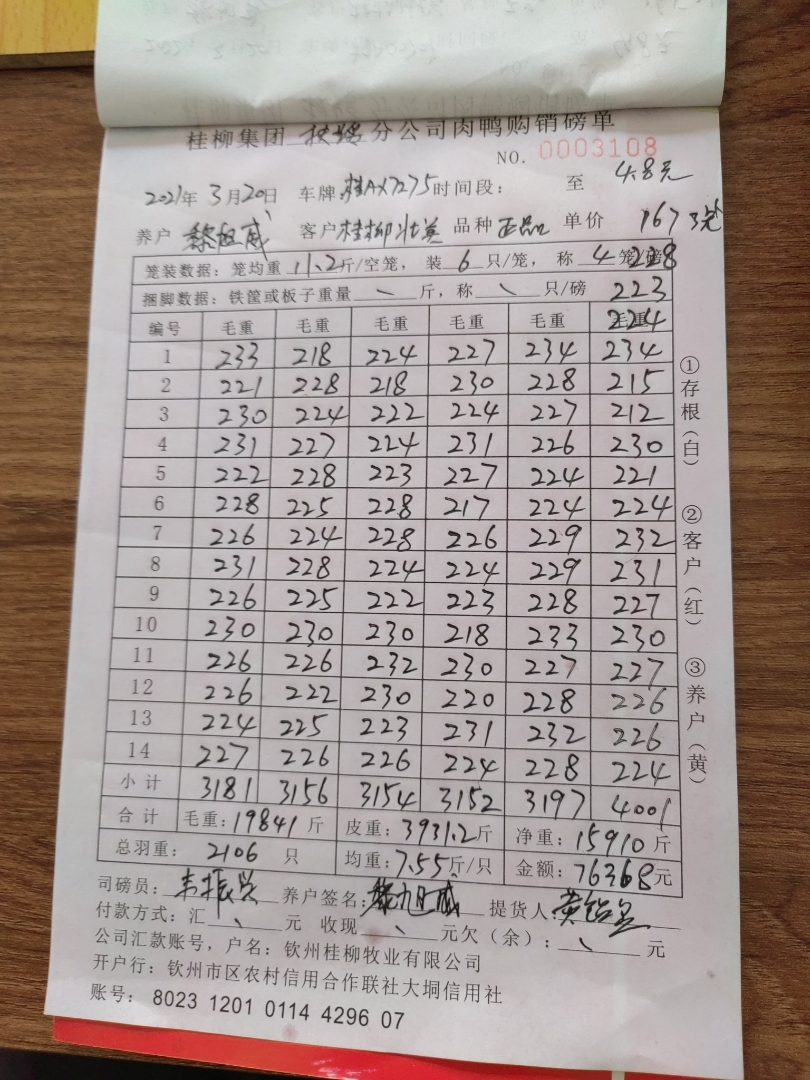 桂柳集团 分公司肉鸭购销磅单
NO. 0003108
4.8元
2021年 3月20日 车牌 桂AX7275 时间段： 至
养户 黎旭威 客户 桂柳壮美 品种 正品 单价 167
笼装数据：笼均重 11.2 斤/空笼，装 6 只/笼，称 4 笼/磅 228
捆脚数据：铁筐或板子重量 斤，称 只/磅 223
编号 毛重 毛重 毛重 毛重 毛重 毛重 224
1 233 218 224 227 234 234
2 221 228 218 230 228 215
3 230 224 222 224 227 212
4 231 227 224 231 226 230
5 222 228 223 227 224 221
6 228 225 228 217 224 224
7 226 224 228 226 229 232
8 231 228 224 224 229 231
9 226 225 222 223 228 227
10 230 230 230 218 233 230
11 226 226 232 230 227 227
12 226 222 230 220 228 226
13 224 225 223 231 232 226
14 227 226 226 224 228 224
小计 3181 3156 3154 3152 3197 4001
合计 毛重：19841 斤 皮重：3931.2 斤 净重：15910 斤
总羽重： 2106 只 均重：7.55 斤/只 金额：76368 元
司磅员： 韦振兴 养户签名：黎旭威 提货人：
付款方式：汇 元 收现 元欠（余）： 元
公司汇款账号，户名：钦州桂柳牧业有限公司
开户行：钦州市区农村信用合作联社大垌信用社
账号： 8023 1201 0114 4296 07
①存根（白） ②客户（红） ③养户（黄）